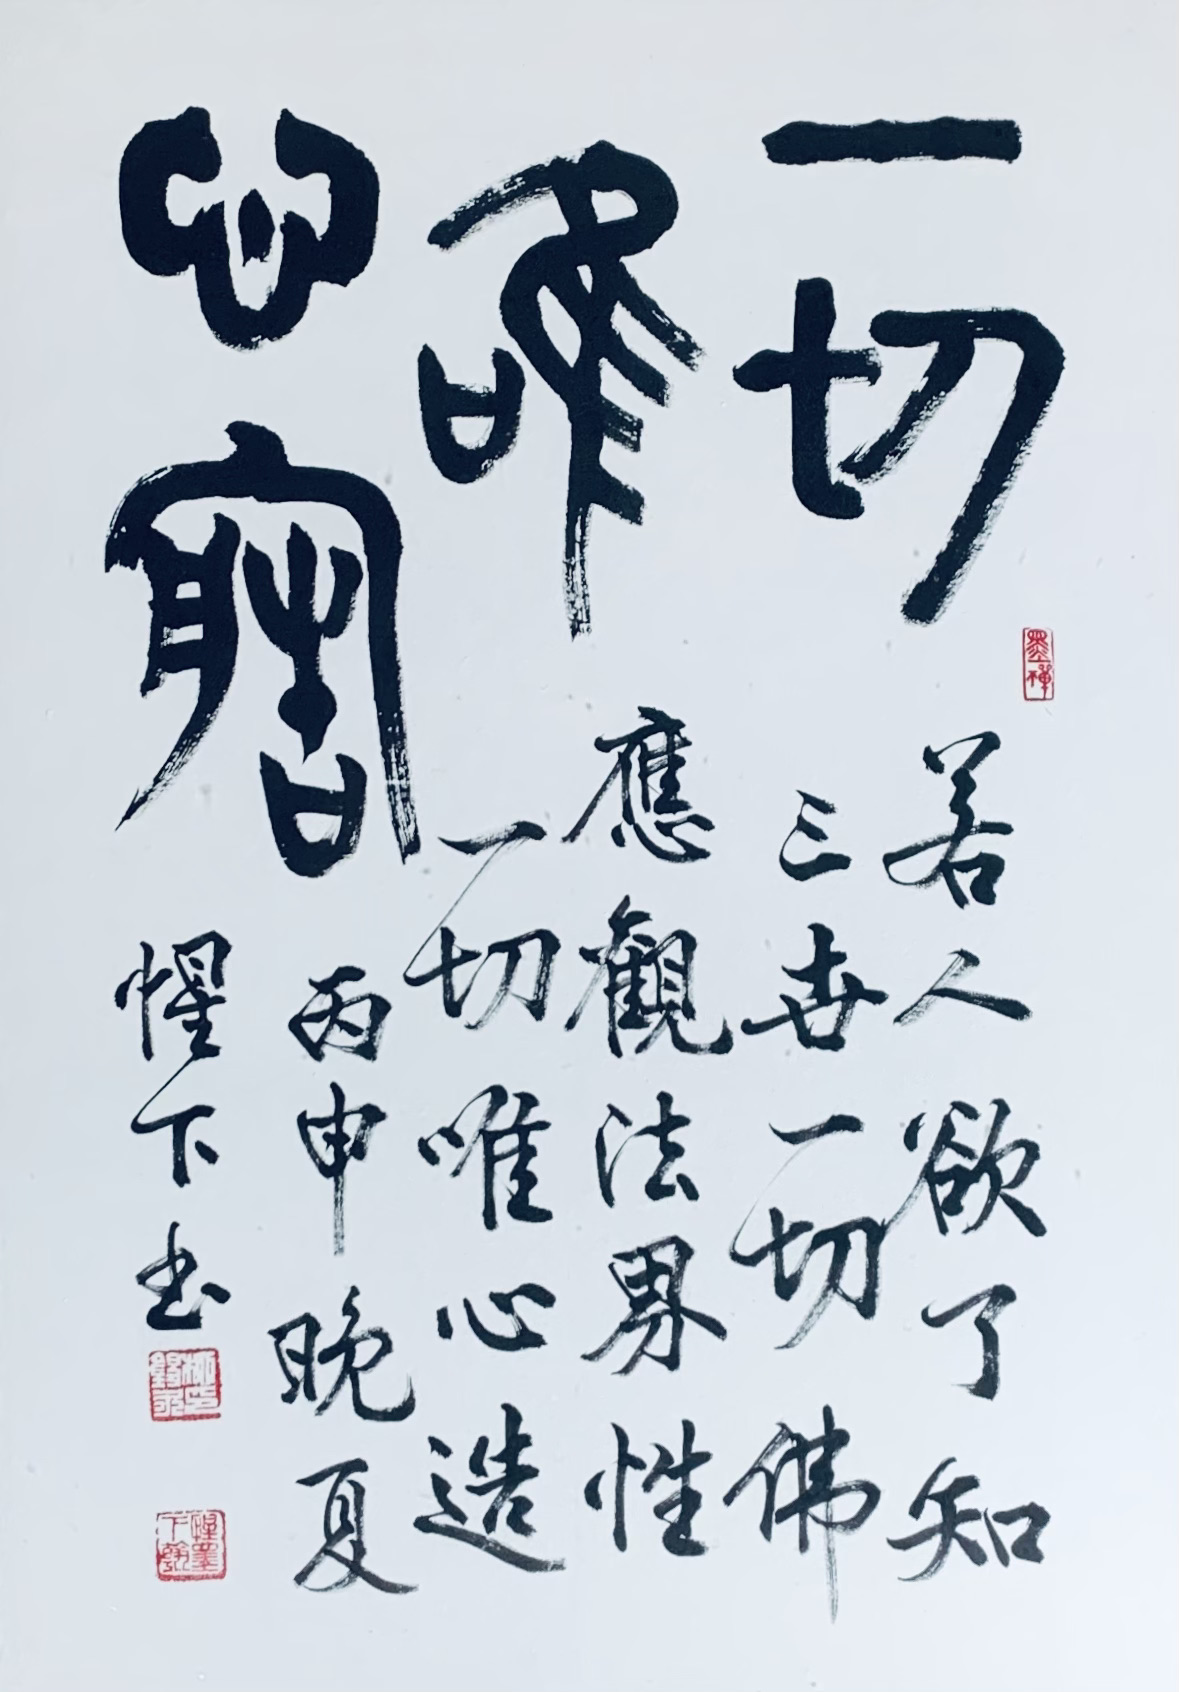 一切
唯
心造
墨禪
若人欲了知
三世一切佛
應觀法界性
一切唯心造
丙申晚夏
惺下書